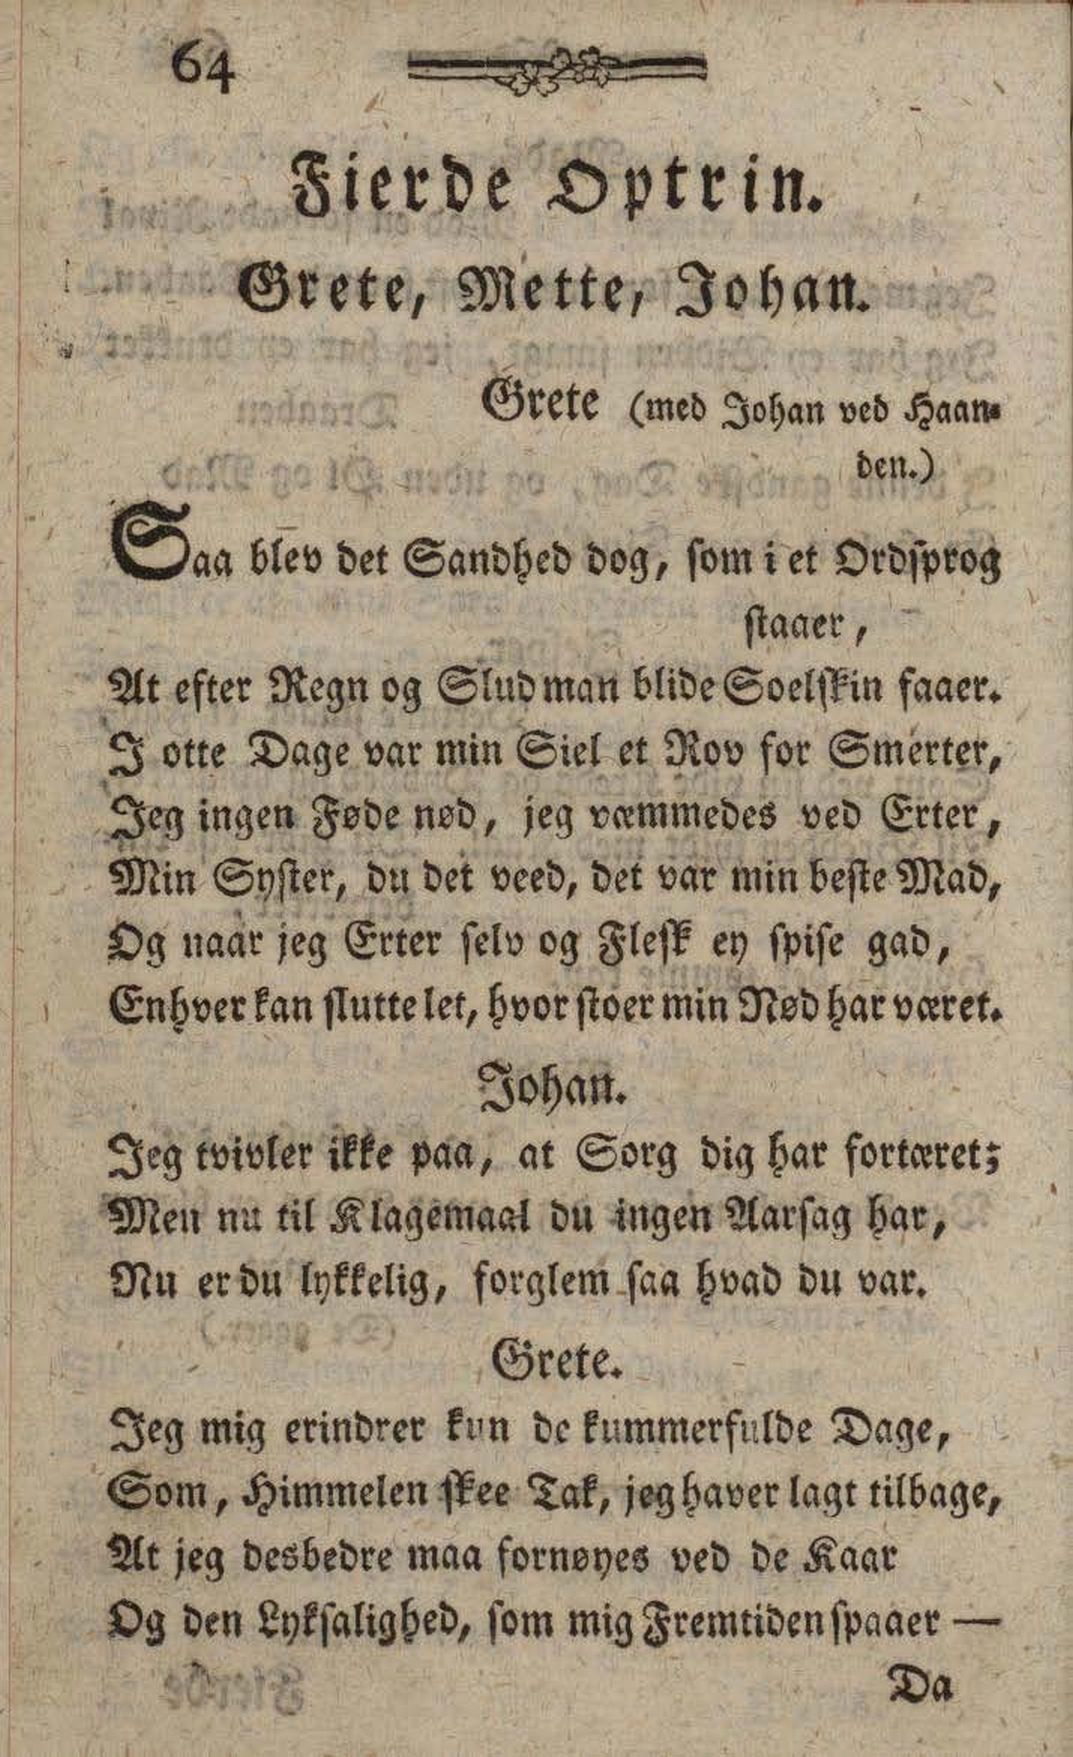 64
Fierde Optrin.
Grete, Mette, Johan.
Grete (med Johan ved Haan-
den.)
Saa blev det Sandhed dog, som i et Ordsprog
staaer,
At efter Regn og Slud man blide Soelskin faaer.
I otte Dage var min Siel et Rov for Smerter,
Jeg ingen Føde nød, jeg væmmedes ved Erter,
Min Syster, du det veed, det var min beste Mad,
Og naar jeg Erter selv og Flesk ey spise gad,
Enhver kan slutte let, hvor stoer min Nød har været.
Johan.
Jeg tvivler ikke paa, at Sorg dig har fortæret;
Men nu til Klagemaal du ingen Aarsag har,
Nu er du lykkelig, forglem saa hvad du var.
Grete.
Jeg mig erindrer kun de kummerfulde Dage,
Som, Himmelen skee Tak, jeg haver lagt tilbage,
At jeg desbedre maa fornøyes ved de Kaar
Og den Lyksalighed, som mig Fremtiden spaaer —
Da